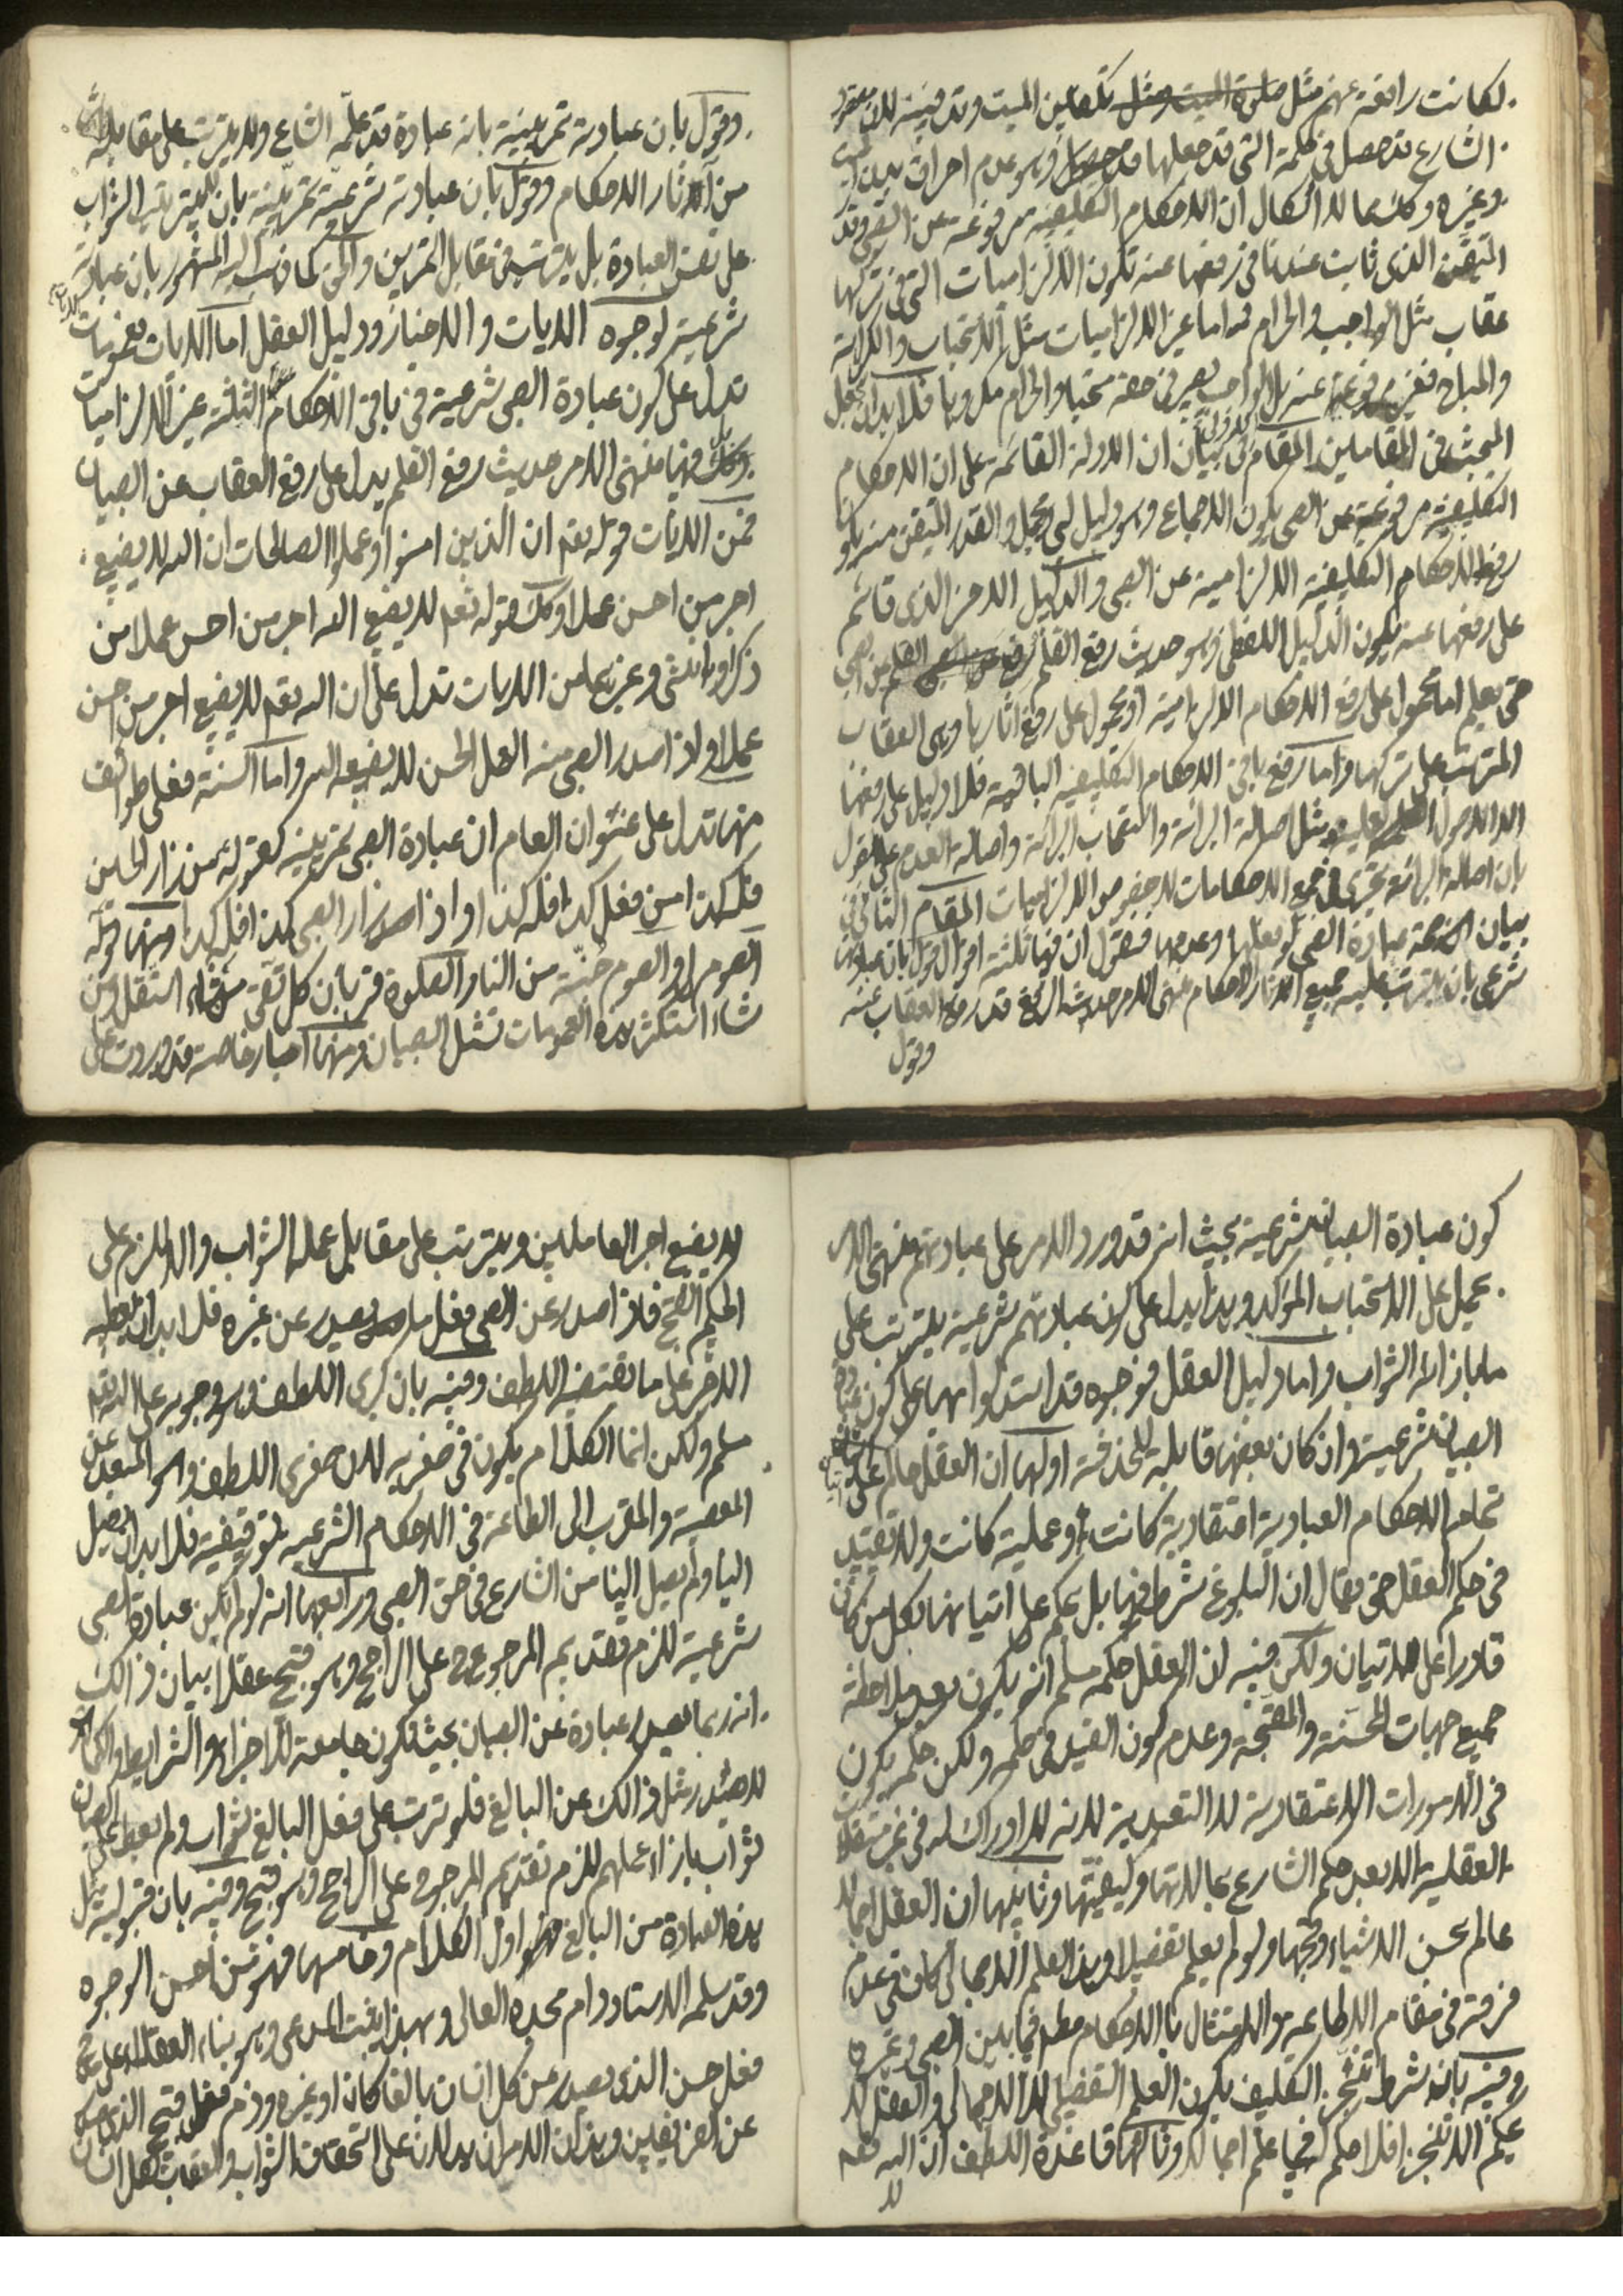 لكانت رافعة عنهم مثل صلوة الميت ومثل تكفين الميت وتدفينه لان مقصود
الشارع قد حصل في كلمة التي قد جعلها وهو عدم احراق بدن الميت
وغيره وكيف ما كان لا اشكال ان الاحكام التكليفية مرفوعة عن الصبي وقدر
المتيقن الذي ثابت عندنا في رفعها عنه تكون الالزاميات التي في تركها
عقاب مثل الواجب والحرام واما غير الالزاميات مثل الاستحباب والكراهة
والمباح فغير مرفوعة عنه بل الواجب يصير في حقه مستحبا والحرام مكروها فلا بد ان يجعل
المبحث في المقامين المقام الاول في بيان ان الادلة القائمة على ان الاحكام
التكليفية مرفوعة عن الصبي يكون الاجماع وهو دليل لبي ومجمل والقدر المتيقن منه هو
رفع الاحكام التكليفية الالزامية عن الصبي والدليل الاخر الذي قائم
على رفعها عنه يكون الدليل اللفظي وهو حديث رفع القلم رفع القلم عن الصبي
حتى يحلم اما محمول على رفع الاحكام الالزامية او محمول على رفع اثارها وهي العقاب
المترتب على تركها واما رفع باقي الاحكام التكليفية الباقية فلا دليل على رفعها
الا الاصول مثل اصالة البرائة واستصحاب البرائة واصالة العدم على القول
بان اصالة البرائة تجري في جميع الاحكامات لا خصوص الالزاميات المقام الثاني في
بيان صحة عبادة الصبي لو فعلها وعدمها فنقول ان فيها ثلثة اقوال قول بان عبادته
شرعي بان يترتب عليه جميع اثار الاحكام منتهى الامر حديث الرفع قد رفع العقاب عنه
وقول
وقول بان عبادته تمرينية بانه عبادة قد علمه الشارع ولا يترتب على مقابله
من آثار الاحكام وقول بان عبادته شرعية تمرينية بان لا يترتب الثواب
على نفس العبادة بل يترتب في مقابل التمرين والحق كما ذهب اليه المشهور بان عبادته
شرعية لوجوه الايات والاخبار ودليل العقل اما الايات فعمومات
تدل على كون عبادة الصبي شرعية في باقي الاحكام الثلثة غير الالزاميات
وكذلك فيها منتهى الامر حديث رفع القلم يدل على رفع العقاب عن الصبيان
فمن الايات قوله تعم ان الذين امنوا وعملوا الصالحات ان الله لا يضيع
اجر من احسن عملا وكك قوله تعم لا يضيع الله اجر من احسن عملا من
ذكر او انثى وغيرها من الايات تدل على ان الله تعم لا يضيع اجر من احسن
عملا واذا صدر الصبي منه العمل الحسن لا يضيعه الله واما السنة فعلى طوائف
منها تدل على عنوان العام ان عبادة الصبي تمرينية كقوله من زار الحسين
فله كذا من فعل كذا فله كذا واذا زار الصبي كذا فله كذا ومنها قوله
الصوم لي والصوم جنة من النار الصلوة قربان كل تقي من شاء استقل ومن
شاء استكثر هذه العمومات تشمل الصبيان ومنها اخبار خاصة قد وردت على
كون عبادة الصبيان شرعية بحيث انه قد ورد الامر على عبادتهم منتهى الامر
يحمل على الاستحباب المؤكد وهذا يدل على كون عبادتهم شرعية يترتب على
ما بازائه الثواب واما دليل العقل فوجوه قد استدلوا بها على كون عبادة
الصبيان شرعية وان كان بعضها قابلة للخدشة اولها ان العقل حاكم على اتيان
تمام الاحكام العبادية اعتقادية كانت او عملية كانت ولا تقييد
في حكم العقل حتى يقال ان البلوغ شرط فيها بل يحكم على اتيانها بكل من كان
قادرا على الاتيان ولكن فيه ان العقل حكمه مسلم انه يكون بعد ملاحظة
جميع جهات المحسنة والمقبحة وعدم كون القيد في حكمه ولكن حكمه يكون
في الامورات الاعتقادية لا التعبدية لانه لا ادراك له في غير مستقلات
العقلية الا بعد حكم الشارع بما لا يتها وكيفيتها وثانيها ان العقل اجمالا
عالم بحسن الاشياء وقبحها ولو لم يعلم تفصيلا وهذا العلم الاجمالي كاف في عدم
فرقه في مقام الاطاعة والامتثال بالاحكام مطم فيما بين الصبي وغيره
وفيه بان شرط تنجز التكليف يكون العلم التفصيلي لا الاجمالي والعقل لا
يحكم التنجز فلا حكم فيما علم اجمالا وثالثها قاعدة اللطف ان الله تعم
لا
لا يضيع اجر العاملين ويترتب على مقابل عمله الثواب والا لزم على
الحكيم القبح فاذا صدر عن الصبي فعل ما يصدر عن غيره فلا بد ان يعطيه
الاجر على ما تقتضيه اللطف وفيه بان كبرى اللطف وهو وجوبه على الله تعم
مسلم ولكن انما الكلام يكون في صغريه لان صغرى اللطف وهو المبعد عن
المعصية والمقرب الى الطاعة في الاحكام الشرعية توقيفية فلا بد ان يصل
الينا ولم يصل الينا من الشارع في حق الصبي ورابعها انه لو لم تكن عبادة الصبي
شرعية للزم تقديم المرجوح على الراجح وهو قبيح عقلا بيان ذالك
انه ربما يصدر عبادة عن الصبيان بحيث تكون جامعة للاجزاء والشرايط والكمال
لا يصدر مثل ذالك عن البالغ فلو ترتب على فعل البالغ ثواب ولم يعط على الصبيان
ثواب بازاء عملهم للزم تقديم المرجوح على الراجح وهو قبيح وفيه بان قبولية مثل
هذه العبادة من البالغ اول الكلام وخامسها فهو من احسن الوجوه
وقد سلمه الاستاد دام مجده العالي وبهذا يثبت المدعى وهو بناء العقلاء على مدح
فعل حسن الذي يصدر من كل انسان بالغا كان او غيره وذم فعل قبيح الذي يصدر
عن الفريقين وهذان الامران يدلان على استحقاق الثواب والعقاب لكل انسان